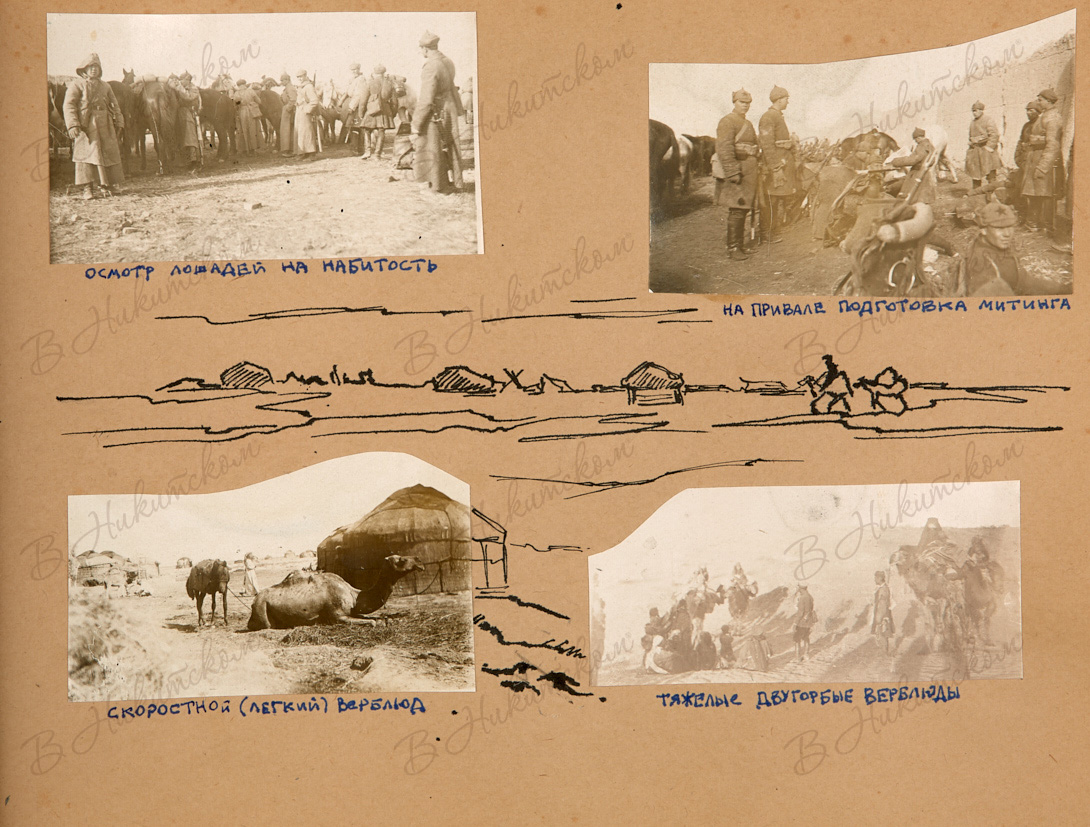 ОСМОТР ЛОШАДЕЙ НА НАБИТОСТЬ
НА ПРИВАЛЕ ПОДГОТОВКА МИТИНГА
СКОРОСТНОЙ (ЛЕГКИЙ) ВЕРБЛЮД
ТЯЖЕЛЫЕ ДВУГОРБЫЕ ВЕРБЛЮДЫ
В Никитском